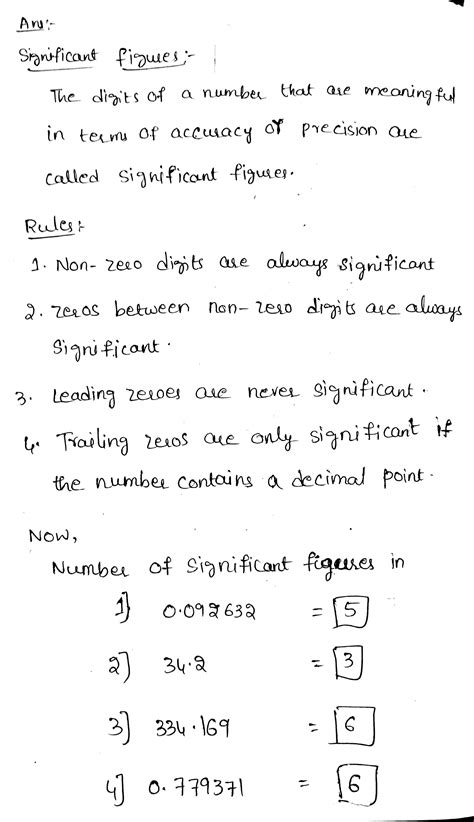 Ans:-
Significant figures:-
The digits of a number that are meaningful
in terms of accuracy or precision are
called significant figures.
Rules:-
1. Non-zero digits are always significant
2. zeros between non-zero digits are always
significant.
3. Leading zeroes are never significant.
4. Trailing zeros are only significant if
the number contains a decimal point.
Now,
Number of significant figures in
1] 0.092632 = 5
2] 34.2 = 3
3] 334.169 = 6
4] 0.779371 = 6